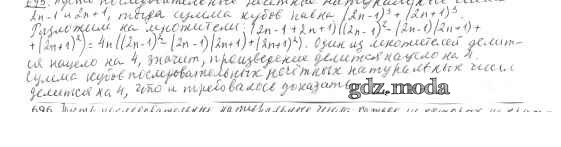 695. Пусть последовательные нечётные натуральные числа
2n-1 и 2n+1, тогда сумма кубов равна (2n-1)³+(2n+1)³.
Разложим на множители: (2n-1+2n+1)((2n-1)²-(2n-1)(2n+1)+
+(2n+1)²)=4n((2n-1)²-(2n-1)(2n+1)+(2n+1)²). Один из множителей делит-
ся нацело на 4, значит, произведение делится нацело на 4.
Сумма кубов последовательных нечётных натуральных чисел
делится на 4, что и требовалось доказать.
gdz.moda
696. Пусть последовательные натуральные числа